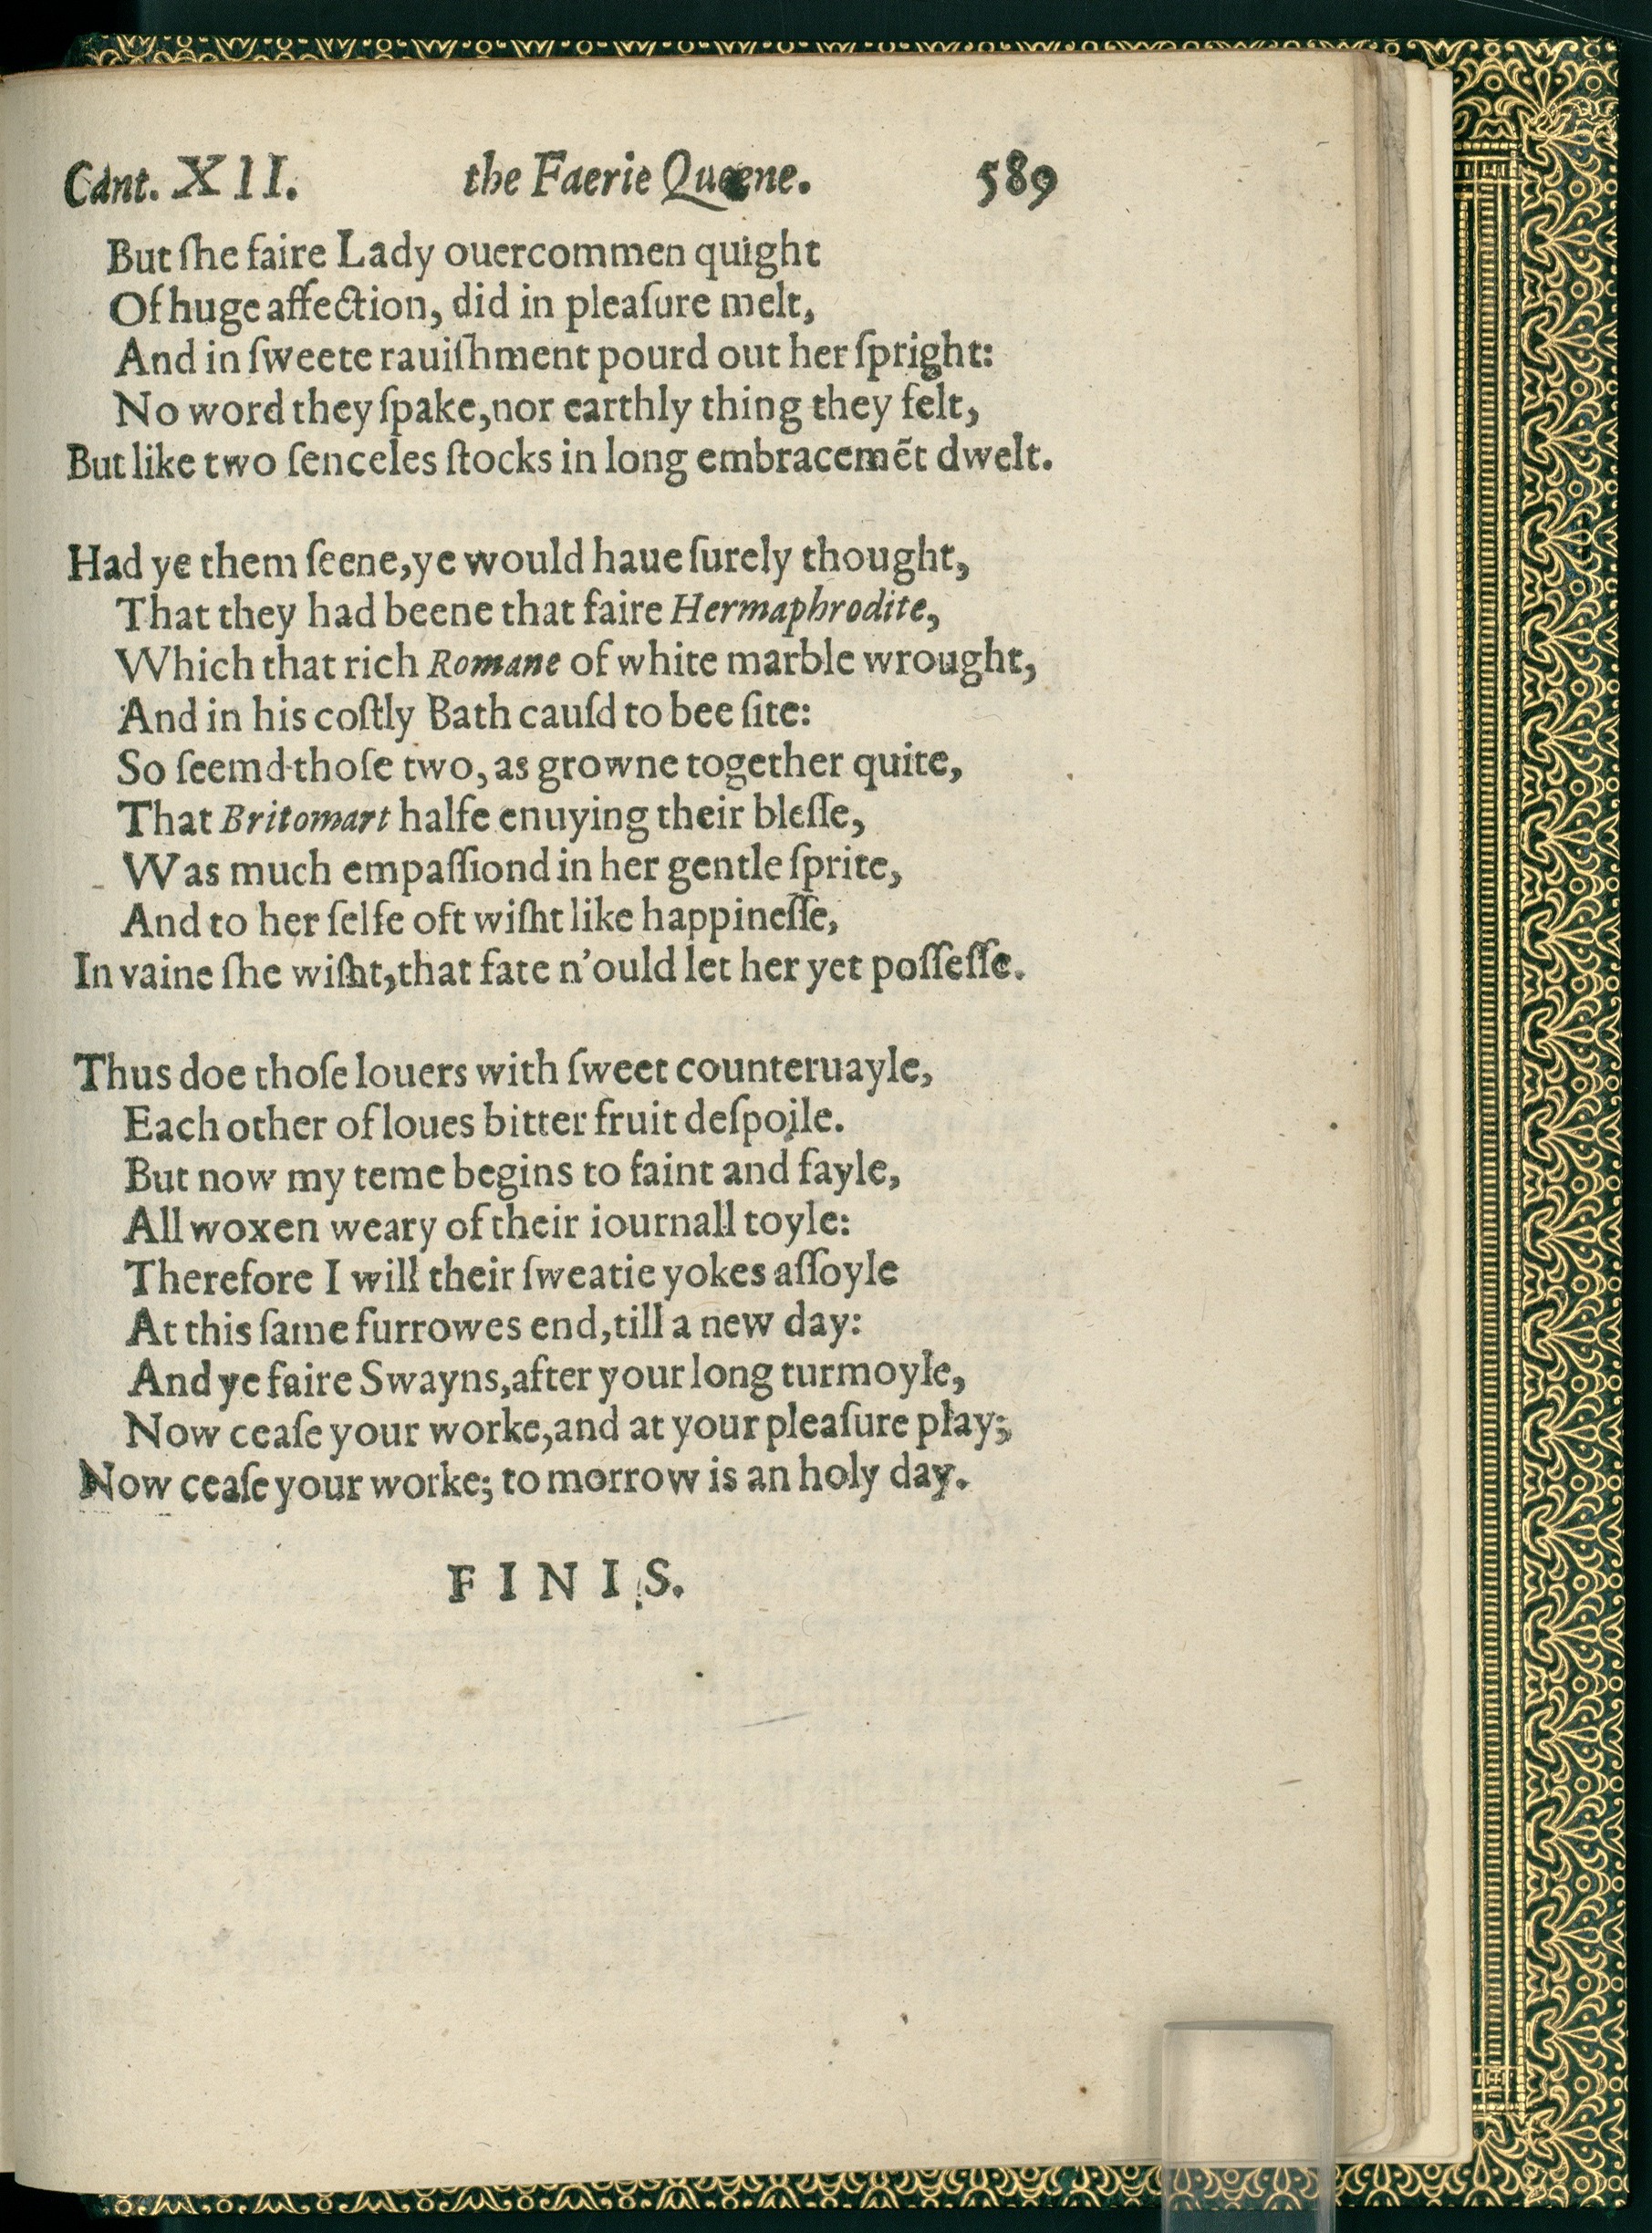 Cant. XII. the Faerie Queene. 589
But ſhe faire Lady ouercommen quight
Of huge affection, did in pleaſure melt,
And in ſweete rauiſhment pourd out her ſpright:
No word they ſpake, nor earthly thing they felt,
But like two ſenceles ſtocks in long embracemẽt dwelt.
Had ye them ſeene, ye would haue ſurely thought,
That they had beene that faire Hermaphrodite,
Which that rich Romane of white marble wrought,
And in his coſtly Bath cauſd to bee ſite:
So ſeemd thoſe two, as growne together quite,
That Britomart halfe enuying their bleſſe,
Was much empaſſiond in her gentle ſprite,
And to her ſelfe oft wiſht like happineſſe,
In vaine ſhe wiſht, that fate n'ould let her yet poſſeſſe.
Thus doe thoſe louers with ſweet counteruayle,
Each other of loues bitter fruit deſpoile.
But now my teme begins to faint and fayle,
All woxen weary of their iournall toyle:
Therefore I will their ſweatie yokes aſſoyle
At this ſame furrowes end, till a new day:
And ye faire Swayns, after your long turmoyle,
Now ceaſe your worke, and at your pleaſure play;
Now ceaſe your worke; to morrow is an holy day.
FINIS.